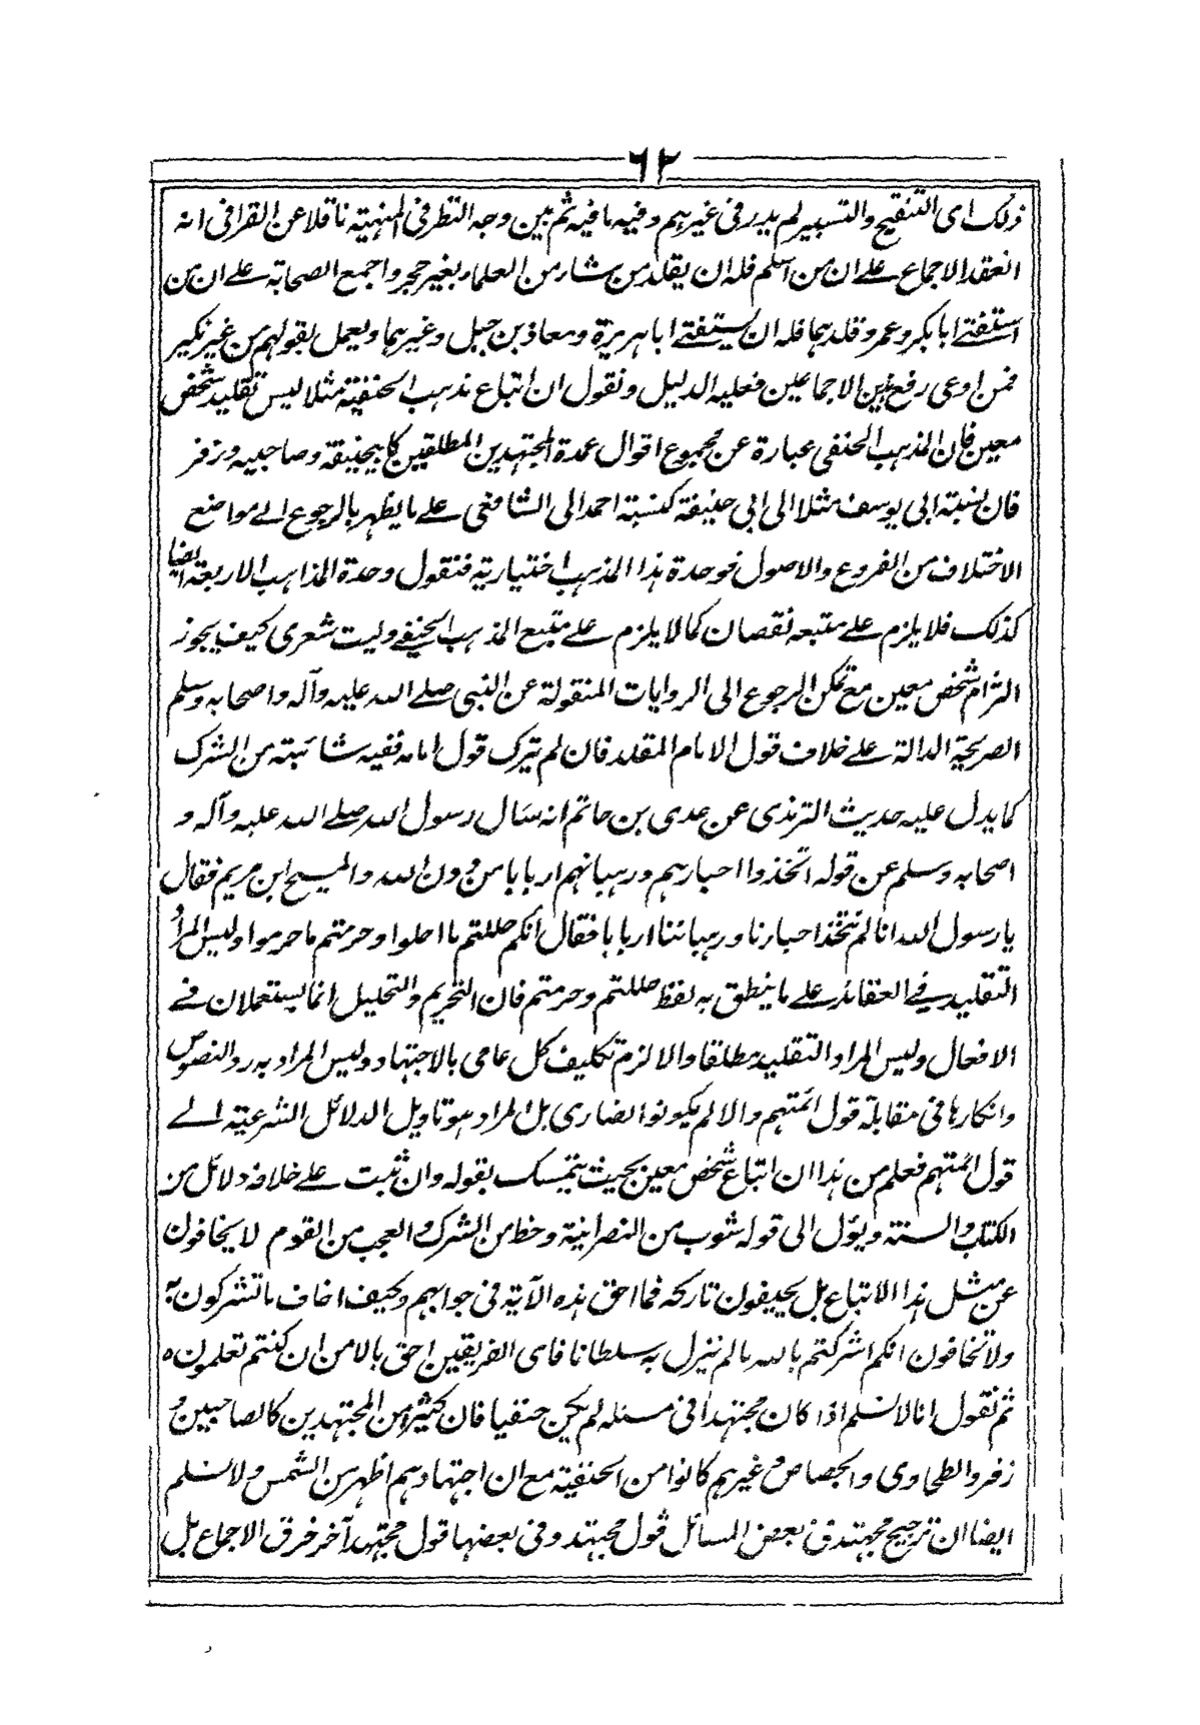 ٦٢
ذلک ای التنقیح والتسییر لم یدر فی غیرہم وفیہ ما فیہ ثم بین وجہ النظر فی المنہیۃ ناقلا عن القرافی انہ
انعقد الاجماع علے ان من اسلم فلہ ان یقلد من شاء من العلماء بغیر حجر واجمع الصحابۃ علے ان من
استفتے ابا بکر وعمر وقلدہما فلہ ان یستفتے ابا ہریرۃ ومعاذ بن جبل وغیرہما ویعمل بقولہم من غیر نکیر
فمن ادعی رفع ہذین الاجماعین فعلیہ الدلیل ونقول ان اتباع مذہب الحنفیۃ مثلا لیس تقلید شخص
معین فان المذہب الحنفی عبارۃ عن مجموع اقوال عمدۃ المجتہدین المطلقین کابیحنیفۃ وصاحبیہ وزفر
فان نسبۃ ابی یوسف مثلا الی ابی حنیفۃ کنسبۃ احمد الی الشافعی علے ما یظہر بالرجوع الے مواضع
الاختلاف من الفروع والاصول فوحدۃ ہذا المذہب اختیاریۃ فنقول وحدۃ المذاہب الاربعۃ ایضا
کذلک فلا یلزم علے متبعہ نقصان کما لا یلزم علے متبع المذہب الحنفے ولیت شعری کیف یجوز
التزام شخص معین مع تمکن الرجوع الی الروایات المنقولۃ عن النبی صلے اللہ علیہ وآلہ واصحابہ وسلم
الصریحۃ الدالۃ علے خلاف قول الامام المقلد فان لم یترک قول امامہ ففیہ شائبۃ من الشرک
کما یدل علیہ حدیث الترمذی عن عدی بن حاتم انہ سال رسول اللہ صلے اللہ علیہ وآلہ و
اصحابہ وسلم عن قولہ اتخذوا احبارہم ورہبانہم اربابا من دون اللہ والمسیح ابن مریم فقال
یا رسول اللہ انا لم نتخذ احبارنا ورہباننا اربابا فقال انکم حللتم ما احلوا وحرمتم ما حرموا ولیس المراد
التقلید فے العقائد علے ما ینطق بہ لفظ حللتم وحرمتم فان التحریم والتحلیل انما یستعملان فے
الافعال ولیس المراد التقلید مطلقا والا لزم تکلیف کل عامی بالاجتہاد ولیس المراد بہ رد النصوص
وانکارہا فی مقابلۃ قول ائمتہم والا لم یکونوا نصاری بل المراد ہو تاویل الدلائل الشرعیۃ الے
قول ائمتہم فعلم من ہذا ان اتباع شخص معین بحیث یتمسک بقولہ وان ثبت علے خلافہ دلائل من
الکتاب والسنۃ ویؤل الی قولہ شوب من النصرانیۃ وحظ من الشرک والعجب من القوم لا یخافون
عن مثل ہذا الاتباع بل یخیفون تارکہ فما احق ہذہ الآیۃ فی جوابہم وکیف اخاف ما تشرکون بہ
ولا تخافون انکم اشرکتم باللہ ما لم ینزل بہ سلطانا فای الفریقین احق بالامن ان کنتم تعلمون ہ
ثم نقول انا لا نسلم اذا کان مجتہدا فی مسئلہ لم یکن حنفیا فان کثیرا من المجتہدین کالصاحبین و
زفر والطحاوی والجصاص وغیرہم کانوا من الحنفیۃ مع ان اجتہادہم اظہر من الشمس ولا نسلم
ایضا ان ترجیح مجتہد فی بعض المسائل قول مجتہد وفی بعضہا قول مجتہد آخر خرق الاجماع بل